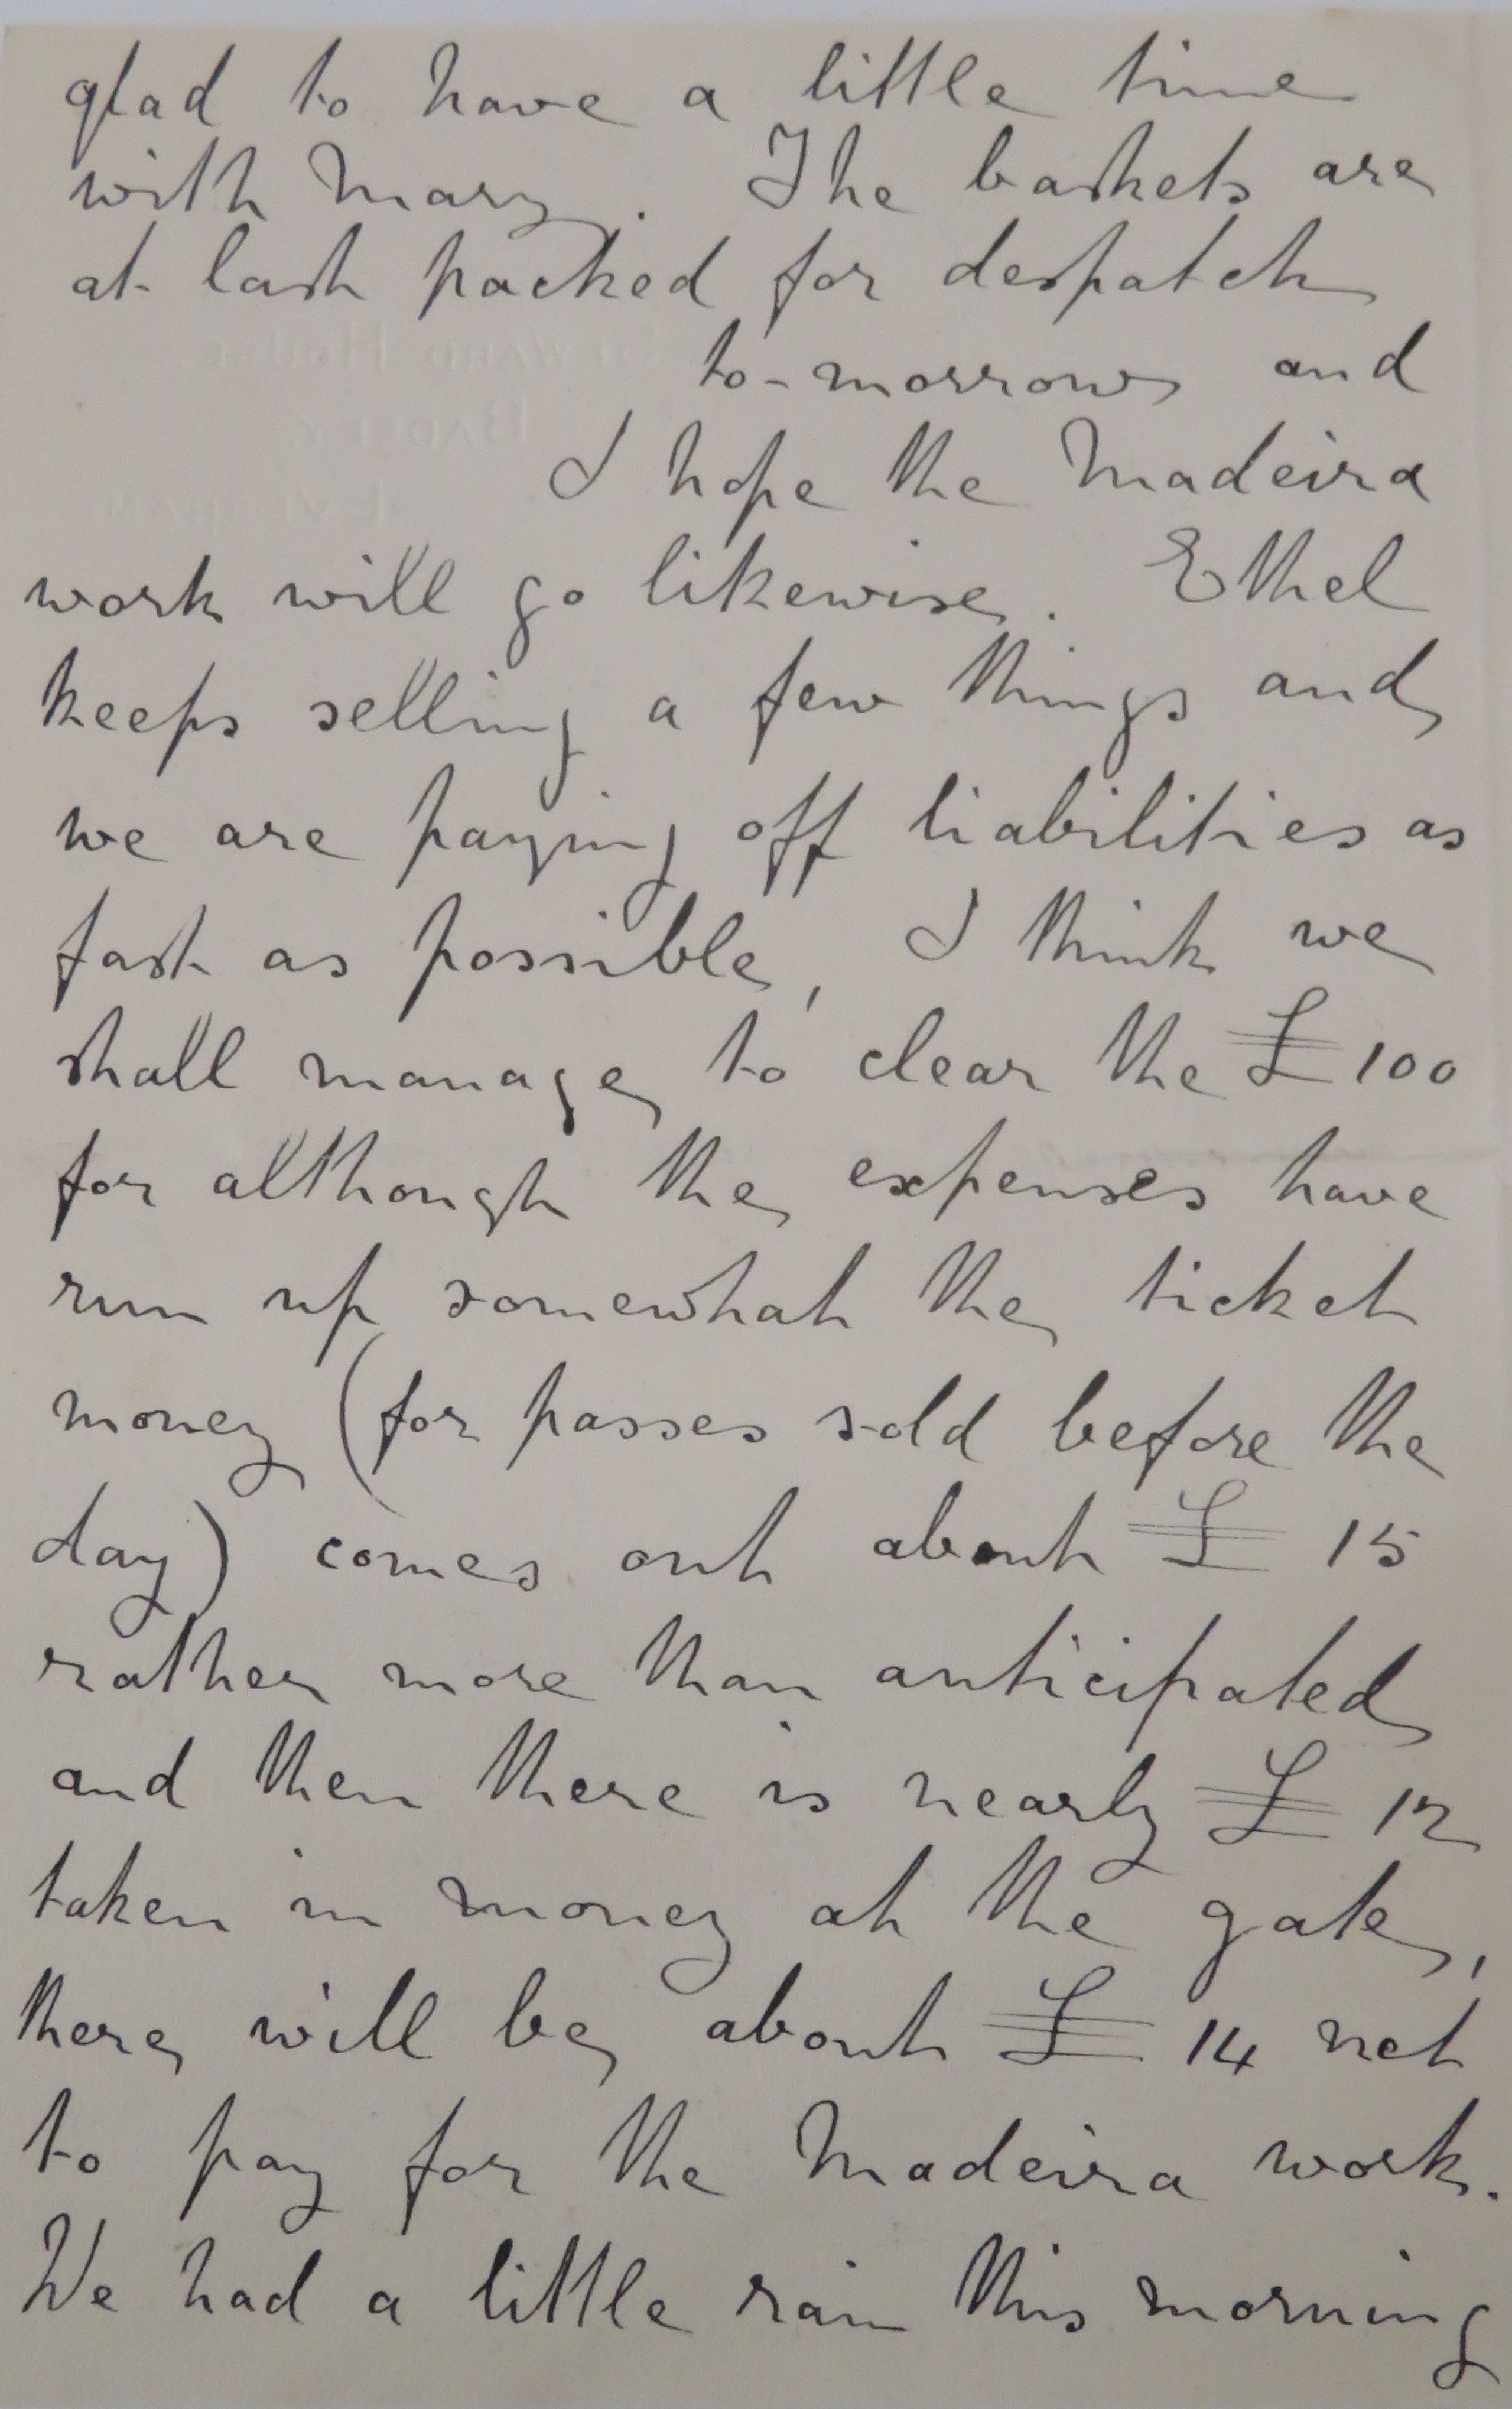 glad to have a little time
with Mary. The baskets are
at last packed for despatch
to-morrow and
I hope the Madeira
work will go likewise. Ethel
keeps selling a few things and
we are paying off liabilities as
fast as possible, I think we
shall manage to clear the £100
for although the expenses have
run up somewhat the ticket
money (for passes sold before the
day) comes out about £ 15
rather more than anticipated
and then there is nearly £ 12
taken in money at the gate,
there will be about £ 14 net
to pay for the Madeira work.
We had a little rain this morning